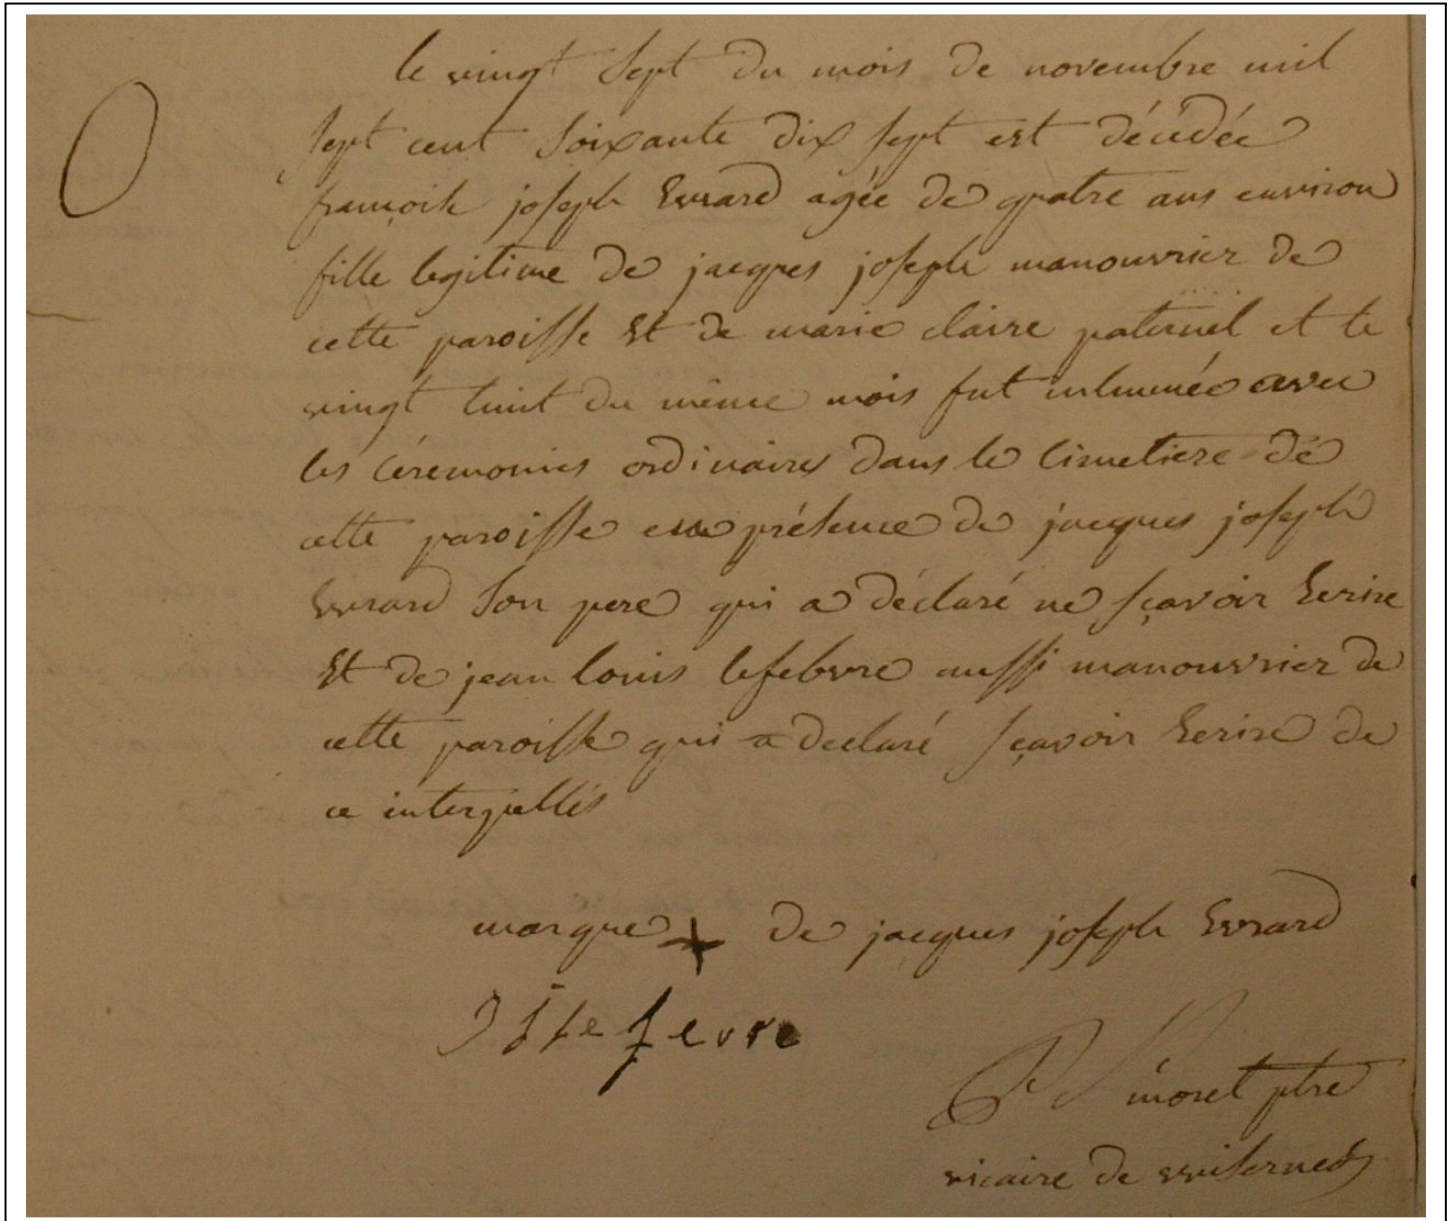 le vingt sept du mois de novembre mil
sept cent soixante dix sept est décédée
françoise joseph Evrard agée de quatre ans environ
fille legitime de jacques joseph manouvrier de
cette paroisse Et de marie claire paternel et le
vingt huit du même mois fut inhumée avec
les cérémonies ordinaires dans le cimetiere de
cette paroisse en présence de jacques joseph
Evrard son pere qui a déclaré ne sçavoir Ecrire
Et de jean louis lefebvre aussi manouvrier de
cette paroisse qui a declaré sçavoir Ecrire de
ce interpellés
marque de jacques joseph Evrard
lefevre
moret ptre
vicaire de wisernes